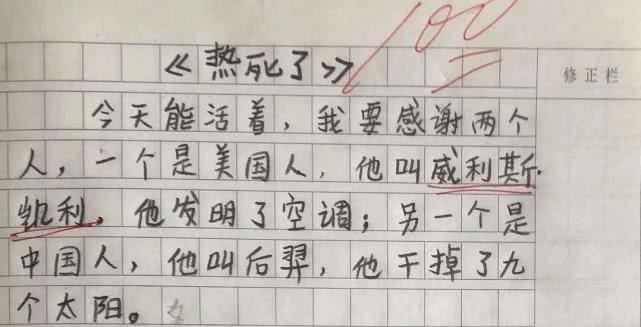 100
《热死了》
修正栏
今天能活着，我要感谢两个
人，一个是美国人，他叫威利斯·
凯利，他发明了空调；另一个是
中国人，他叫后羿，他干掉了九
个太阳。